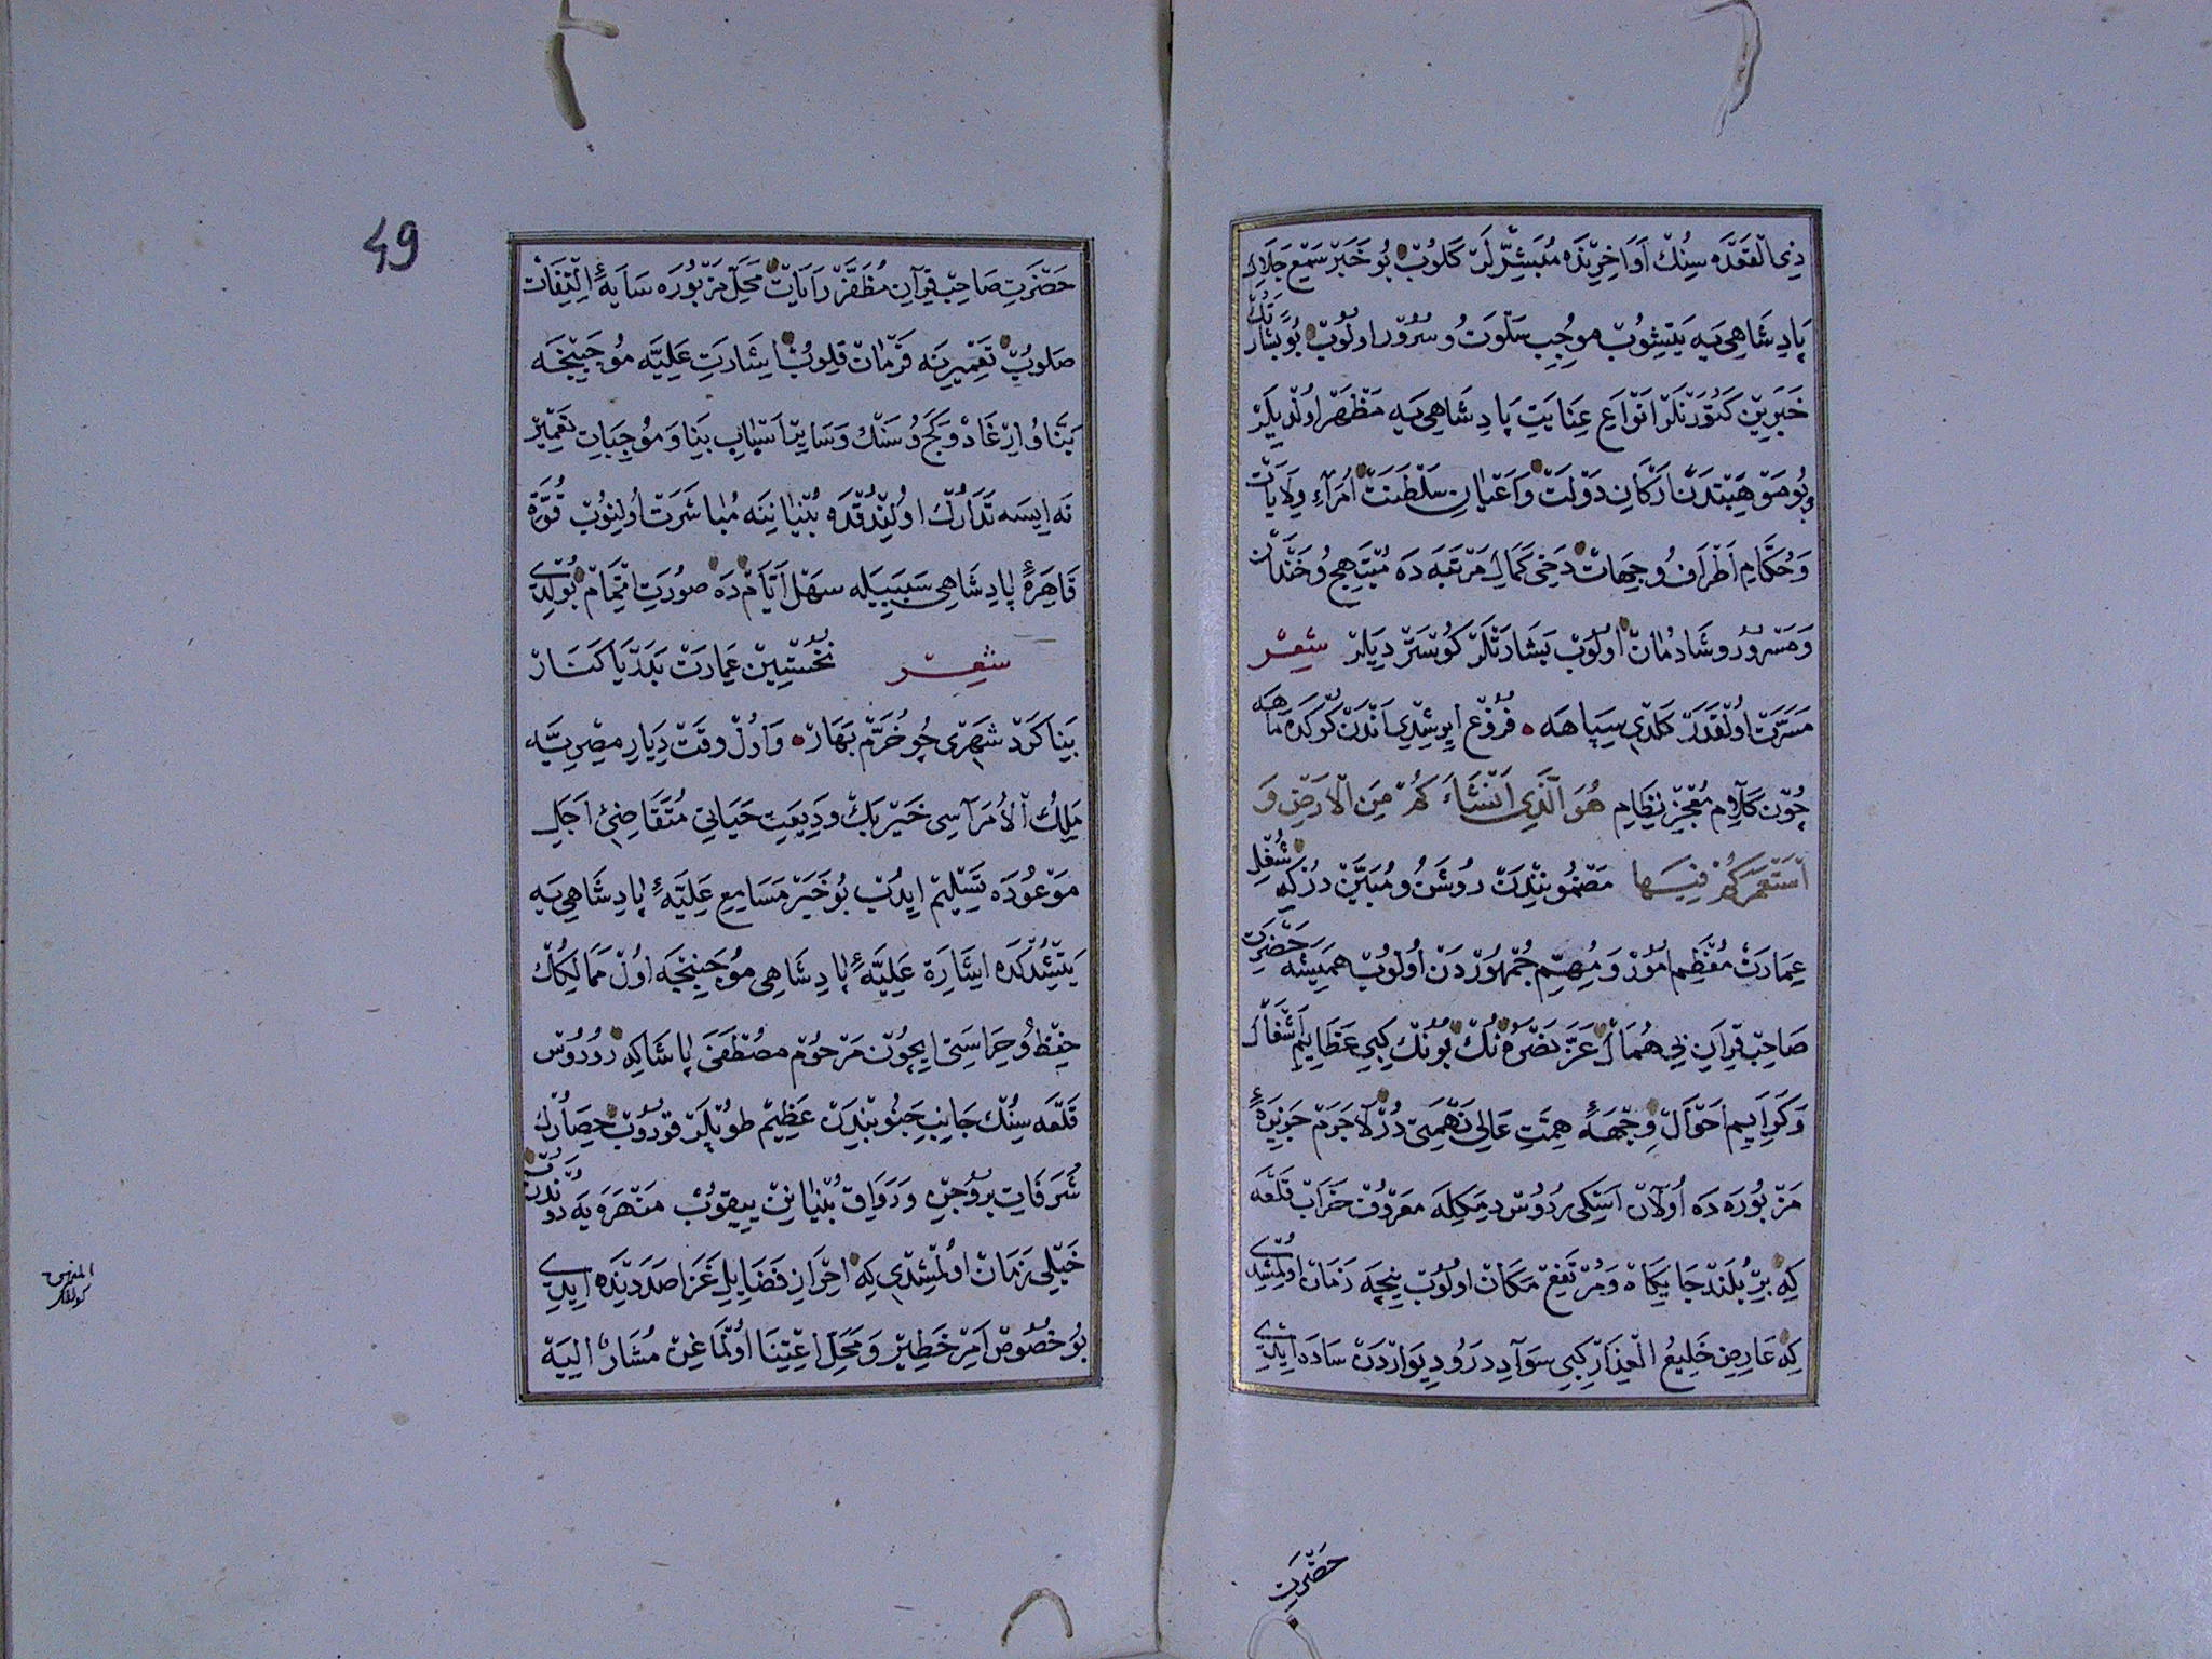 ذِی الْقَعْدَه سِنُكْ اَوَاخِرِنْدَه مُبَشِّرْلَرْ كَلُوبْ بُو خَبَرْ سَمْعِ جَلَالِ
پَادِشَاهِی‌یَه یَتِشُوبْ مُوجِبِ سَلْوَتْ وُ سُرُورْ اولُوبْ بُو بَشَارَتْكْ
خَبَرِینْ كَتُورَنْلَرْ اَنْوَاعِ عِنَایَتِ پَادِشَاهِی‌یَه مَظْهَرْ اولْدِیلَرْ
اَرْكَانِ دَوْلَتْ وَاَعْیَانِ سَلْطَنَتْ اُمَرَاءِ وِلَایَاتْ
وَحُكَّامِ اَطْرَافْ وُ جِهَاتْ دَخِی كَمَالِ مَرْتَبَه‌دَه مُبْتَهِجْ وُ خَنْدَانْ
وَمَسْرُورْ وُ شَادُمَانْ اولُوبْ بَشَارَتْلَرْ كُوسْتَرْدِیلَرْ شِعِرْ
مَسَرَّتْ اولْقَدَرْ كَلْدِی سِپَاهَه فُرُوغْ ایرِشْدِی اَنْدَنْ كُوكَدَه مَاهَه
چُونْ كَلَامِ مُعْجِزْ نِظَامِ هُوَ الَّذِی اَنْشَاَكُمْ مِنَ الْاَرْضِ وَ
اسْتَعْمَرَكُمْ فِیهَا مَضْمُونِنْدَنْ رُوشَنْ وُ مُبَیَّنْ دُرْ كِه شُغْلِ
عِمَارَتْ مُعْظَمِ اُمُورْ وَ مُهِمِّ جُمْهُورْدَنْ اولُوبْ هَمِیشَه حَضْرَتِ
صَاحِبْ قِرَانِ بِی هُمَالْ عَزَّ نَصْرُهُ نُكْ بُونُكْ كِبِی عَظَایِمِ اَشْغَالْ
وَكَرَایِمِ اَحْوَالْ وِجْهَهٔ هِمَّتِ عَالِی نَهْمَتِی دُرْ لَاجَرَمْ جَزِیرَهٔ
مَزْبُورَه‌دَه اُولَانْ اَسْكِی رُدُوسْ دِمَكِلَه مَعْرُوفْ خَرَابْ قَلْعَه
كِه بِرْ بُلَنْدْ جَایِكَاهْ وَمُرْتَفِعْ مَكَانْ اولُوبْ نِیچَه زَمَانْ اولْمِشْدِی
كِه عَارِضِ خَلِیعُ الْعِذَارْ كِبِی سَوَادِ دَرْ وُ دِیوَارْدَنْ سَادَه ایدِی
حَضْرَتِ
49
حَضْرَتِ صَاحِبْ قِرَانِ مُظَفَّرْ رَایَاتْ مَحَلِّ مَزْبُورَه سَایَهٔ اِلْتِفَاتْ
صَلُوبْ تَعْمِیرِینَه فَرْمَانْ قِلُوبْ اِشَارَتِ عَلِیَّه مُوجَبِنْجَه
بَنَّا وُ اِرْغَادْ وَ كَجْ وُ سَنْكْ وَسَایِرِ اَسْبَابِ بِنَا وَ مُوجِبَاتِ تَعْمِیرْ
نَه ایسَه تَدَارُكْ اولِنْدُقْدَه بُنْیَانِنَه مُبَاشَرَتْ اُولِنُوبْ قُوَّةِ
قَاهِرَهٔ پَادِشَاهِی سَبَبِیلَه سَهْلْ اَیَّامْدَه صُورَتِ اِتْمَامْ بُولْدِی
شِعِرْ نُخُسْتِینْ عِمَارَتْ بَدَرْیَا كَنَارْ
بِنَا كَرْدْ شَهْرِی چُو خُرَّمْ بَهَارْ وَاُولْ وَقْتْ دِیَارِ مِصْرِیَّه
مَلِكُ الْاُمَرَاسِی خَیْرْبَكْ وَدِیعَتِ حَیَاتِی مُتَقَاضِیٔ اَجَلِ
مَوْعُودَه تَسْلِیمْ ایدُبْ بُو خَبَرْ مَسَامِعِ عَلِیَّهٔ پَادِشَاهِی‌یَه
یَتِشْدُكْدَه اِشَارَةِ عَلِیَّهٔ پَادِشَاهِی مُوجَبِنْجَه اُولْ مَمَالِكُكْ
حِفْظْ وُ حِرَاسَتِی ایچُونْ مَرْحُومْ مُصْطَفَی پَاشَا كِه رُودُوسْ
قَلْعَه سِنُكْ جَانِبِ جَنُوبِنْدَنْ عَظِیمْ طُوپْلَرْ قُورُوبْ حِصَارُكْ
شُرَفَاتِ بُرُوجِنْ وَرِوَاقِ بُنْیَانِنْ ییقُوبْ
خَیْلِی زَمَانْ اولْمِشْدِی كِه اِحْرَازِ فَضَایِلِ غَزَا صَدَدِنْدَه ایدِی
بُو خُصُوصْ اَمْرِ خَطِیرْ وَ مَحَلِّ اِعْتِنَا اُولْمَاغِنْ مُشَارٌ اِلَیْه